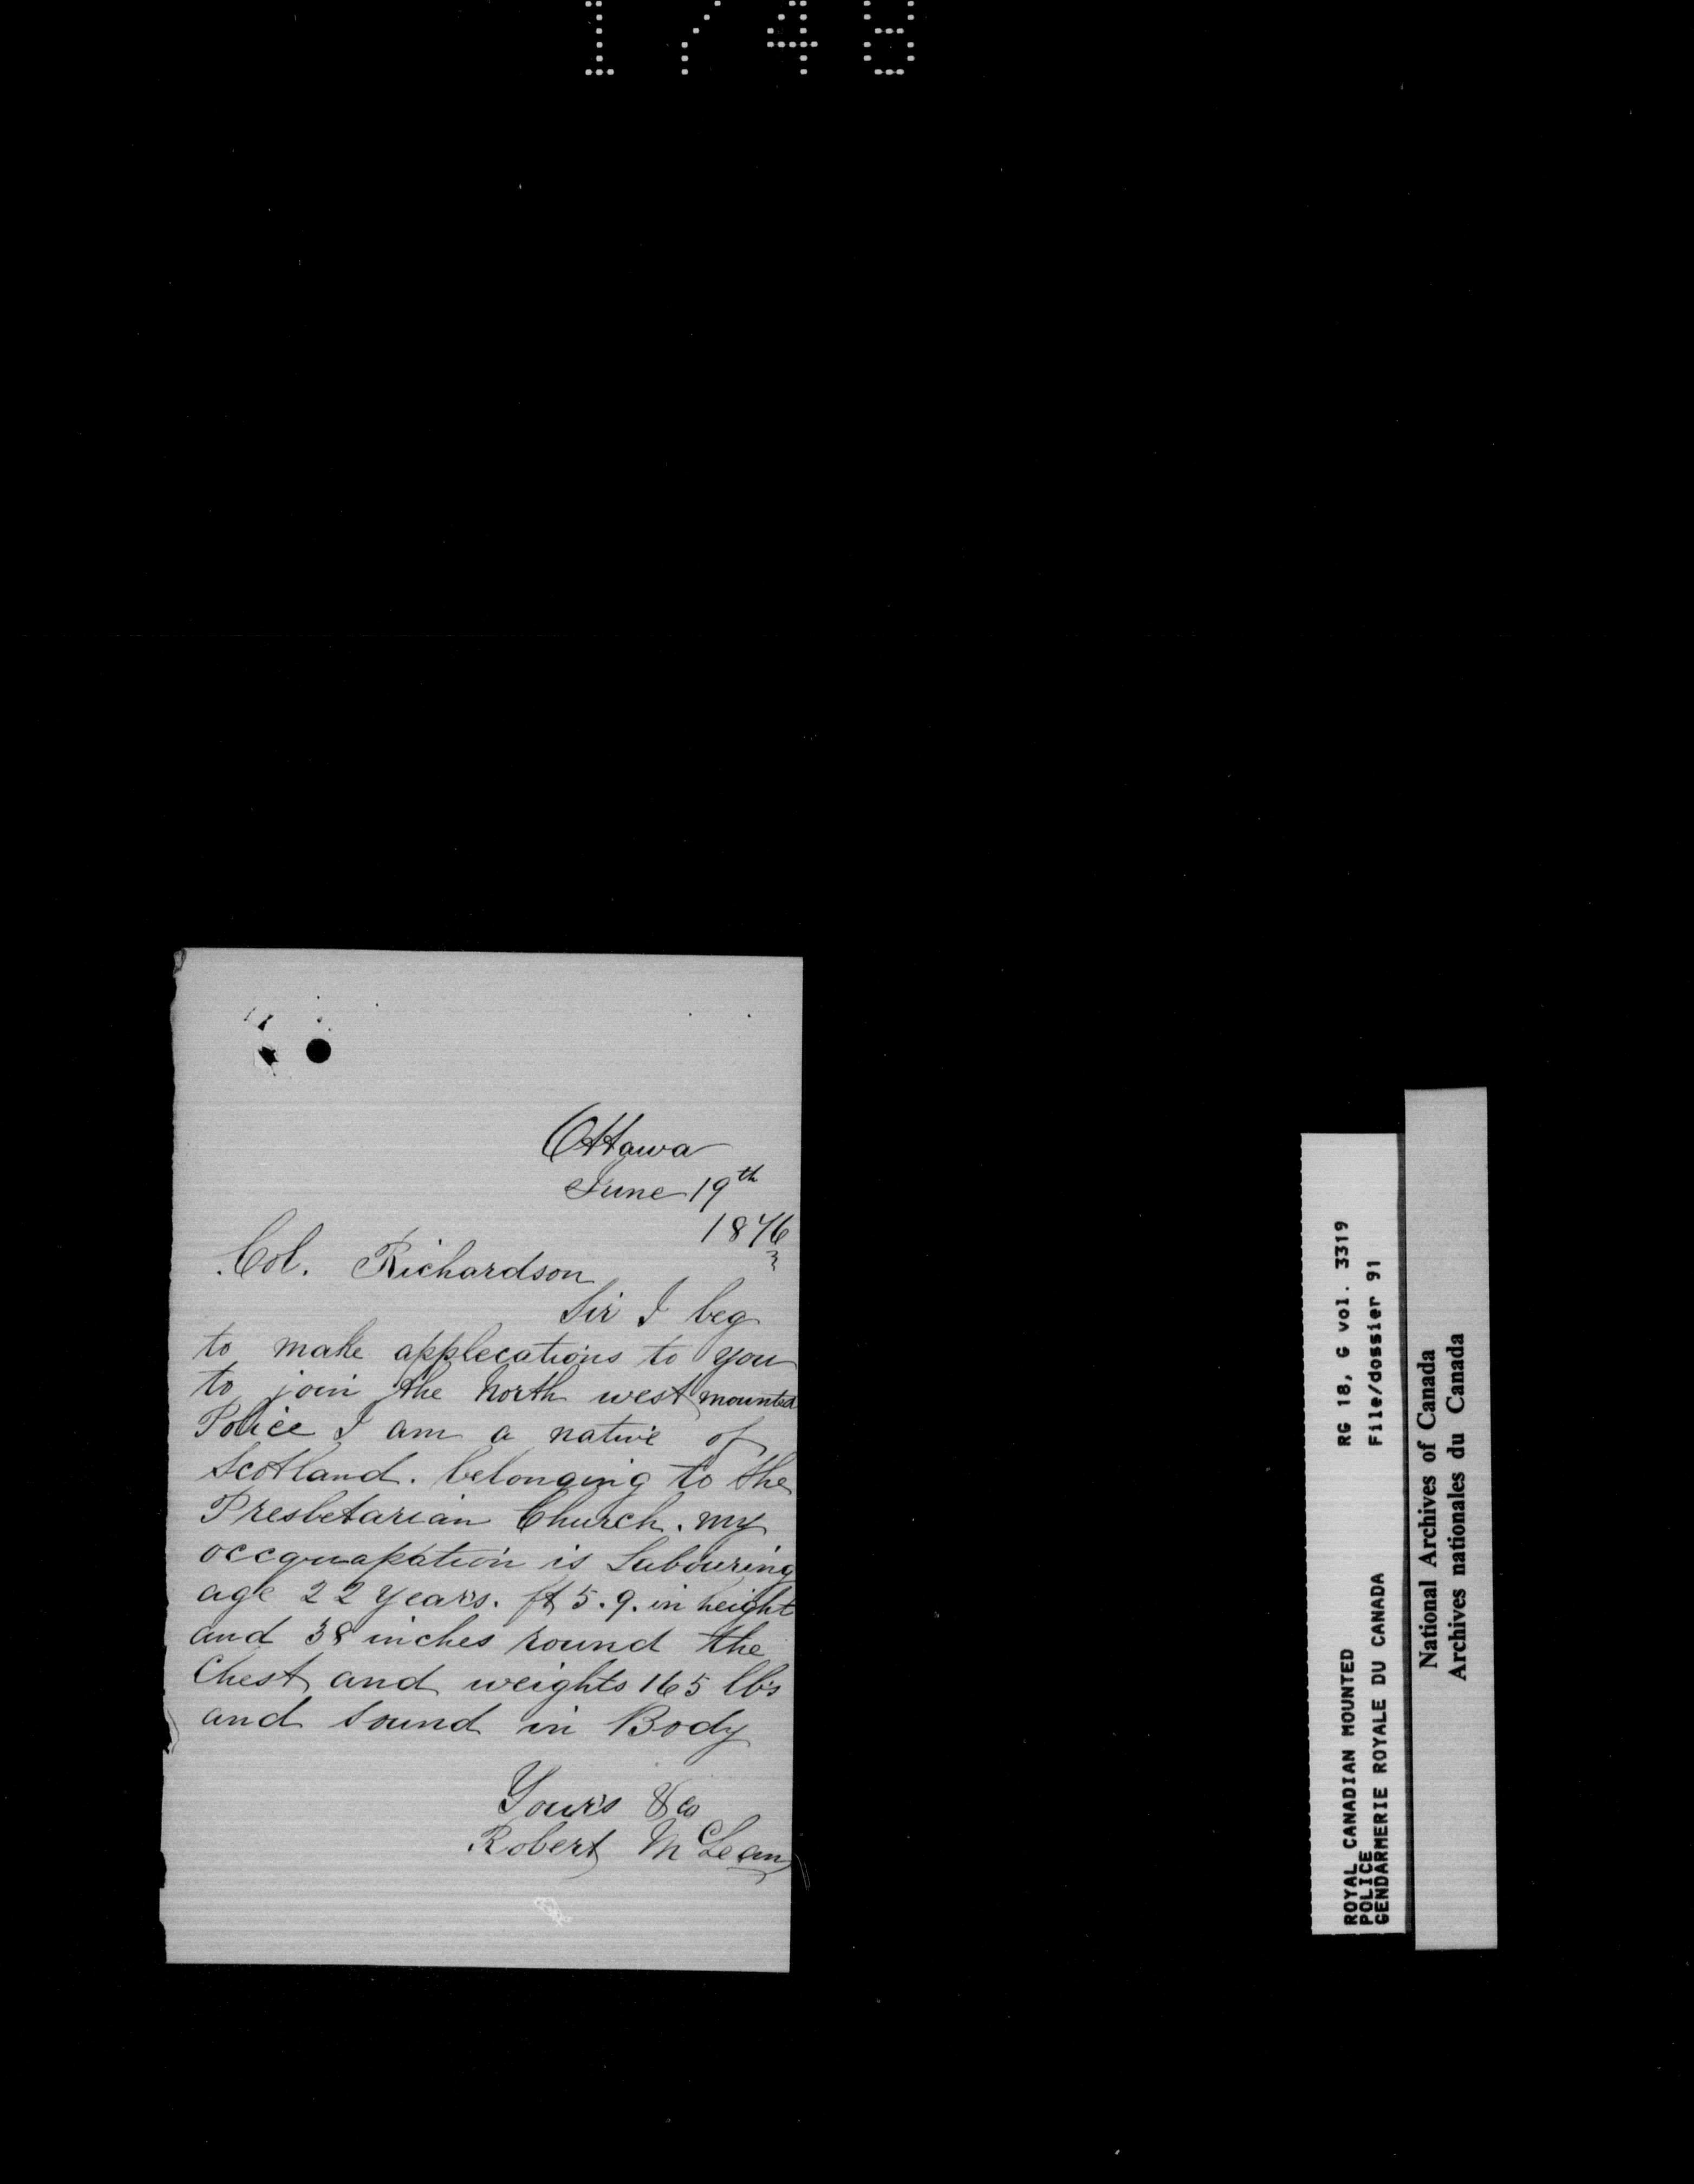 Ottawa
June 19th
1876
Col. Richardson
Sir I beg
to make applecations to you
to join the North west mounted
Police I am a native of
Scotland. belonging to the
Presbetarian Church. my
occquapation is Labouring
age 22 years. ft 5.9. in height
and 38 inches round the
Chest and weights 165 lbs
and sound in Body
Yours &c
Robert McLean
ROYAL CANADIAN MOUNTED
POLICE
GENDARMERIE ROYALE DU CANADA
RG 18, G vol. 3319
File/dossier 91
National Archives of Canada
Archives nationales du Canada